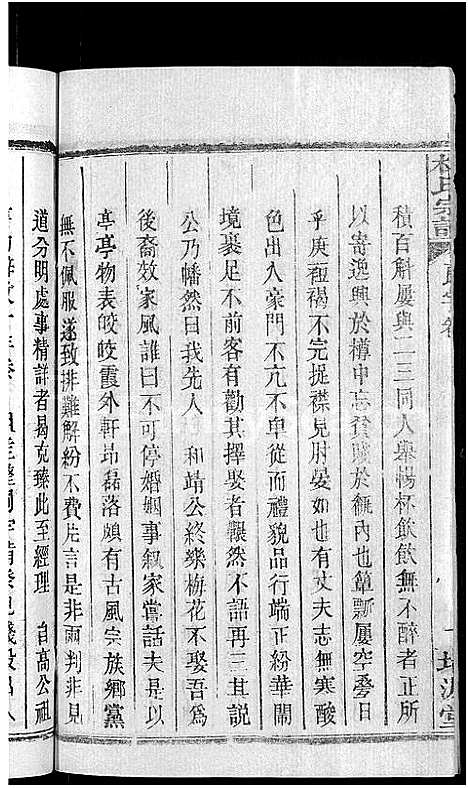 林氏宗譜
積百斛屢與二三同人舉觴杯飲飲無不醉者正所
以寄逸興於樽中忘貧賤於瓶內也簞瓢屢空疊日
乎庚裋褐不完捉襟見肘晏如也有丈夫志無寒酸
色出入豪門不亢不卑從而禮貌品行端正紛華鬧
境裹足不前客有勸其擇娶者囅然不語再三其說
公乃幡然曰我先人 和靖公終樂梅花不娶吾為
後裔效家風誰曰不可停婚姻事叙家嘗話夫是以
亭亭物表皎皎霞外軒昂磊落頗有古風宗族鄉黨
無不佩服遂致排難解紛不費片言是非兩判非見
道分明處事精詳者曷克臻此至經理 自高公祖